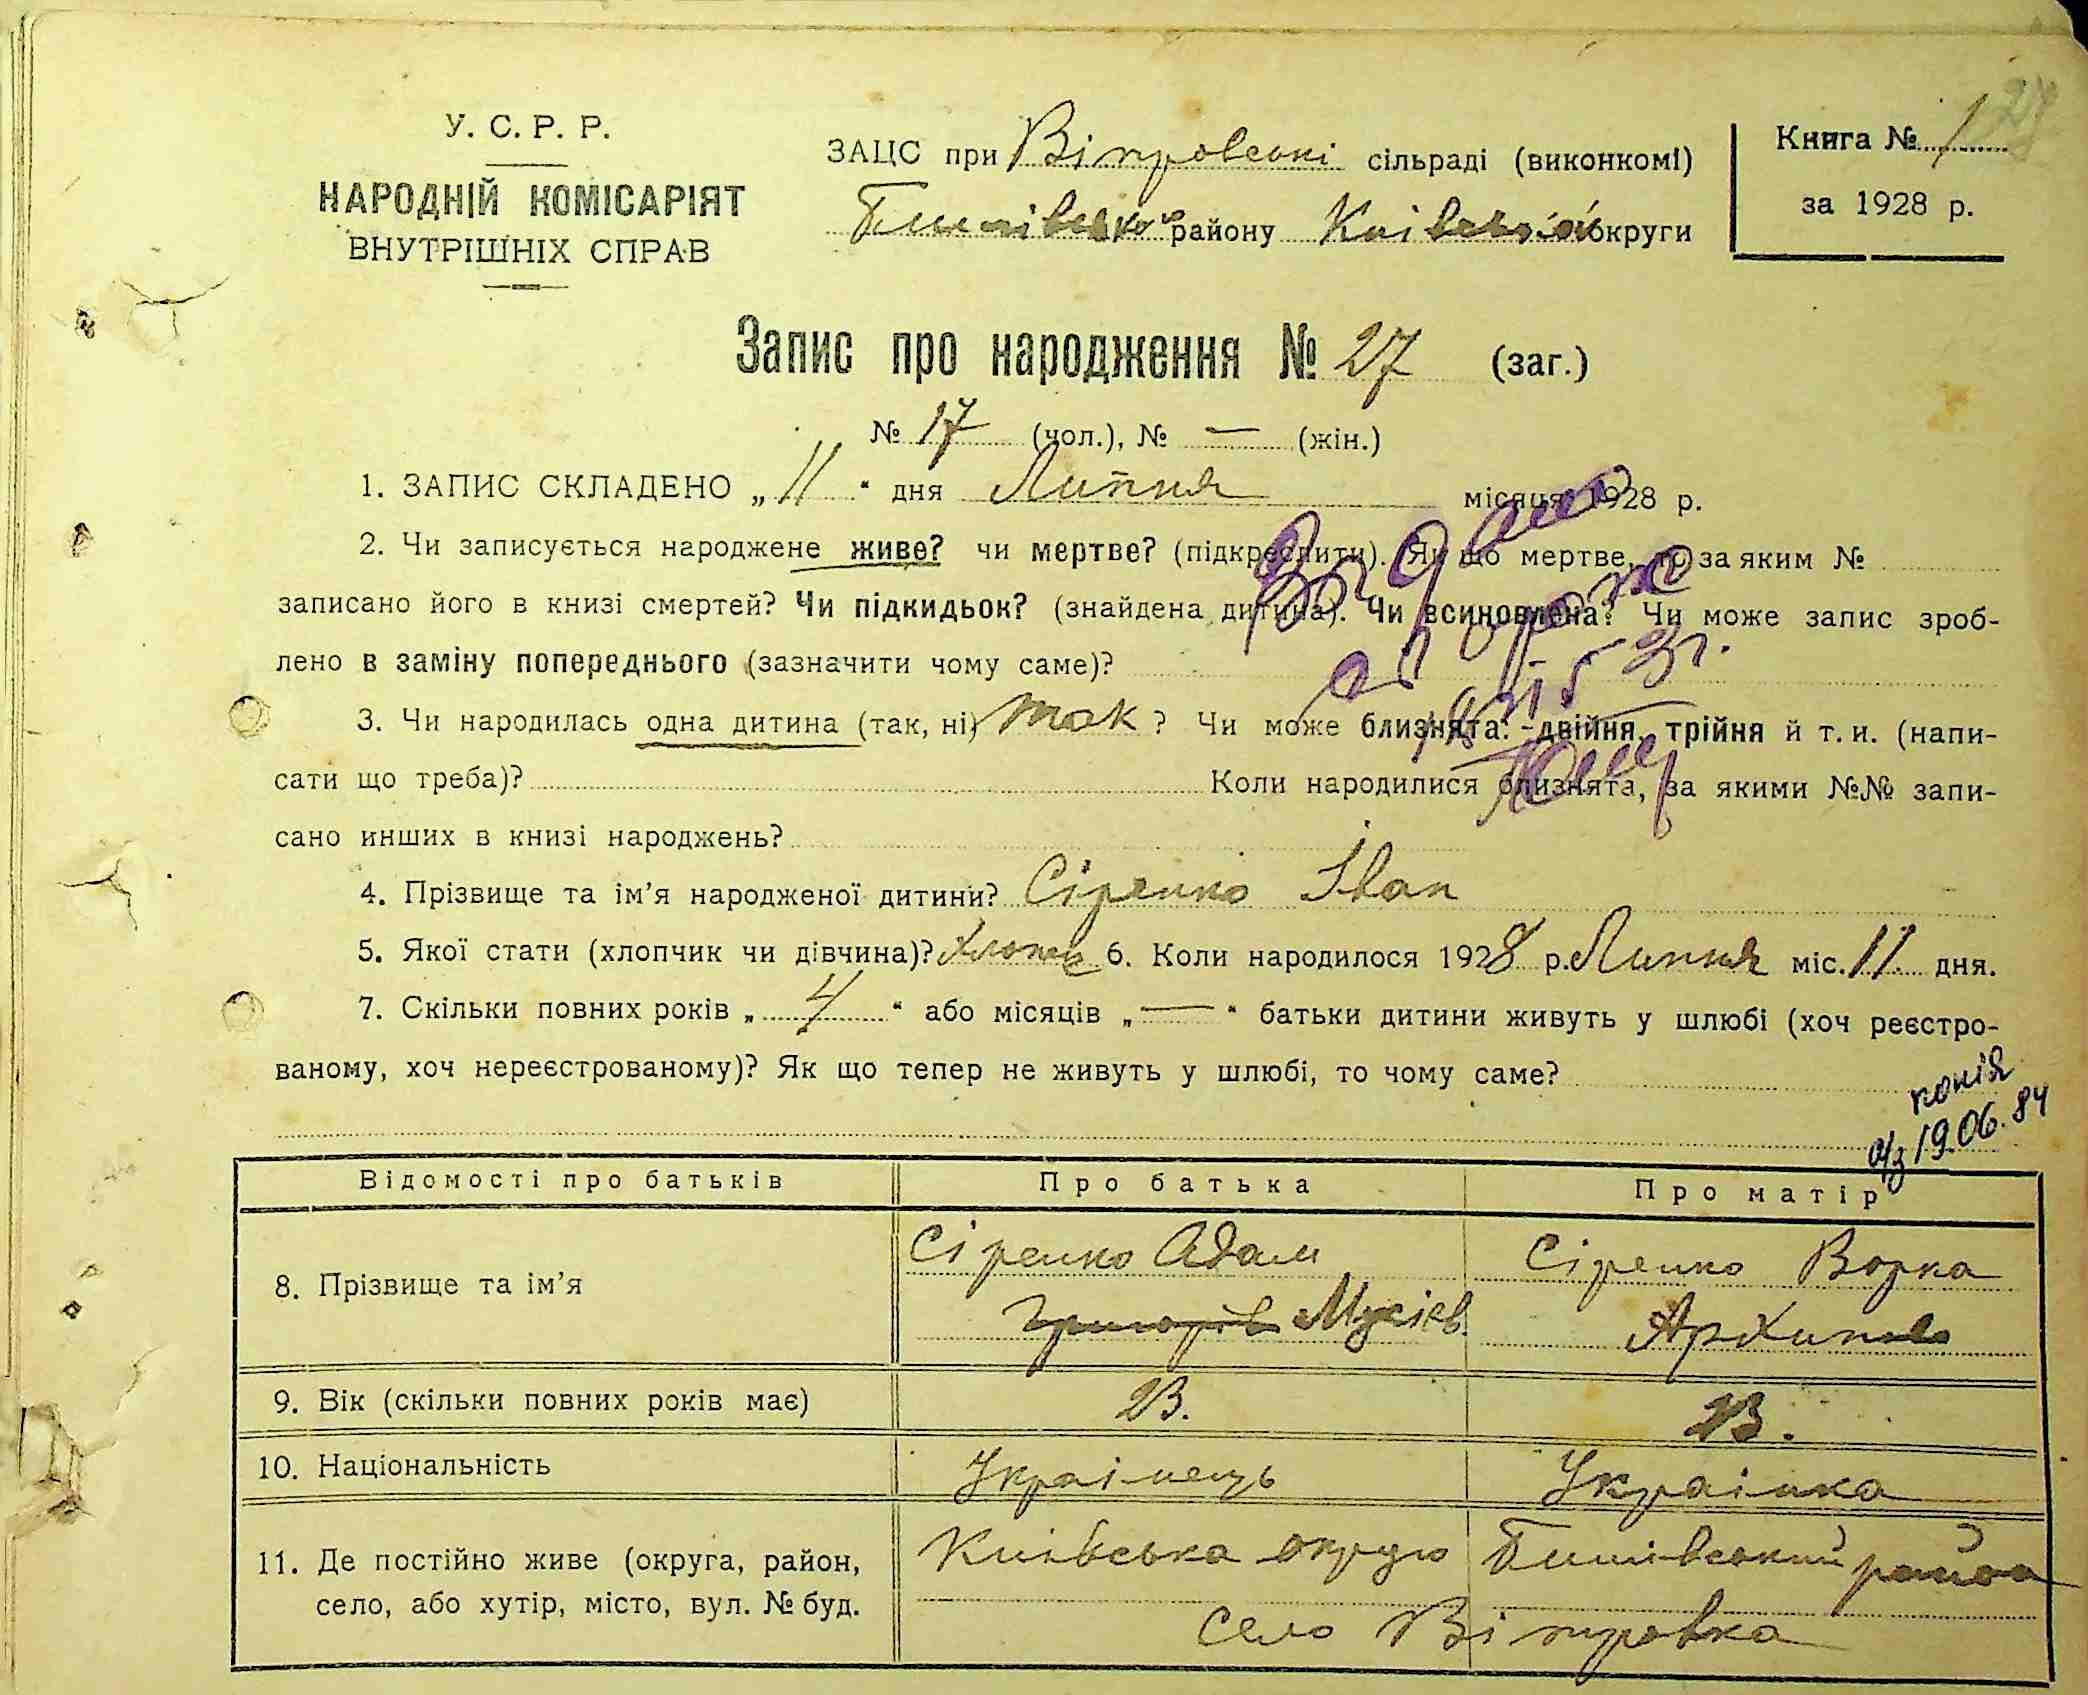 У. С. Р. Р.
НАРОДНІЙ КОМІСАРІЯТ
ВНУТРІШНІХ СПРАВ
ЗАЦС при Вітровські сільраді (виконкомі)
району Київської округи
Книга № 1
за 1928 р.
Запис про народження № 27 (заг.)
№ 17 (чол.), № — (жін.)
1. ЗАПИС СКЛАДЕНО „ 11 “ дня Липня місяця 1928 р.
2. Чи записується народжене живе? чи мертве? (підкреслити). Як що мертве, то за яким №
записано його в книзі смертей? Чи підкидьок? (знайдена дитина). Чи всиновлена? Чи може запис зроб-
лено в заміну попереднього (зазначити чому саме)?
3. Чи народилась одна дитина (так, ні) так ? Чи може близнята: - двійня, трійня й т. и. (напи-
сати що треба)? Коли народилися близнята, за якими №№ запи-
сано инших в книзі народжень?
4. Прізвище та ім’я народженої дитини? Сіренко Іван
5. Якої стати (хлопчик чи дівчина)? хлопец 6. Коли народилося 1928 р. Липня міс. 11 дня.
7. Скільки повних років „ 4 “ або місяців „ — “ батьки дитини живуть у шлюбі (хоч реєстро-
ваному, хоч нереєстрованому)? Як що тепер не живуть у шлюбі, то чому саме?
копія
19.06.84
Відомості про батьків Про батька Про матір
8. Прізвище та ім’я
Сіренко Адам
Григорів Мусієв.
Сіренко Ворка
Архипова
9. Вік (скільки повних років має) 23. 23.
10. Національність Украінець Украінка
11. Де постійно живе (округа, район,
село, або хутір, місто, вул. № буд.
Київська округа район
село Вітровка